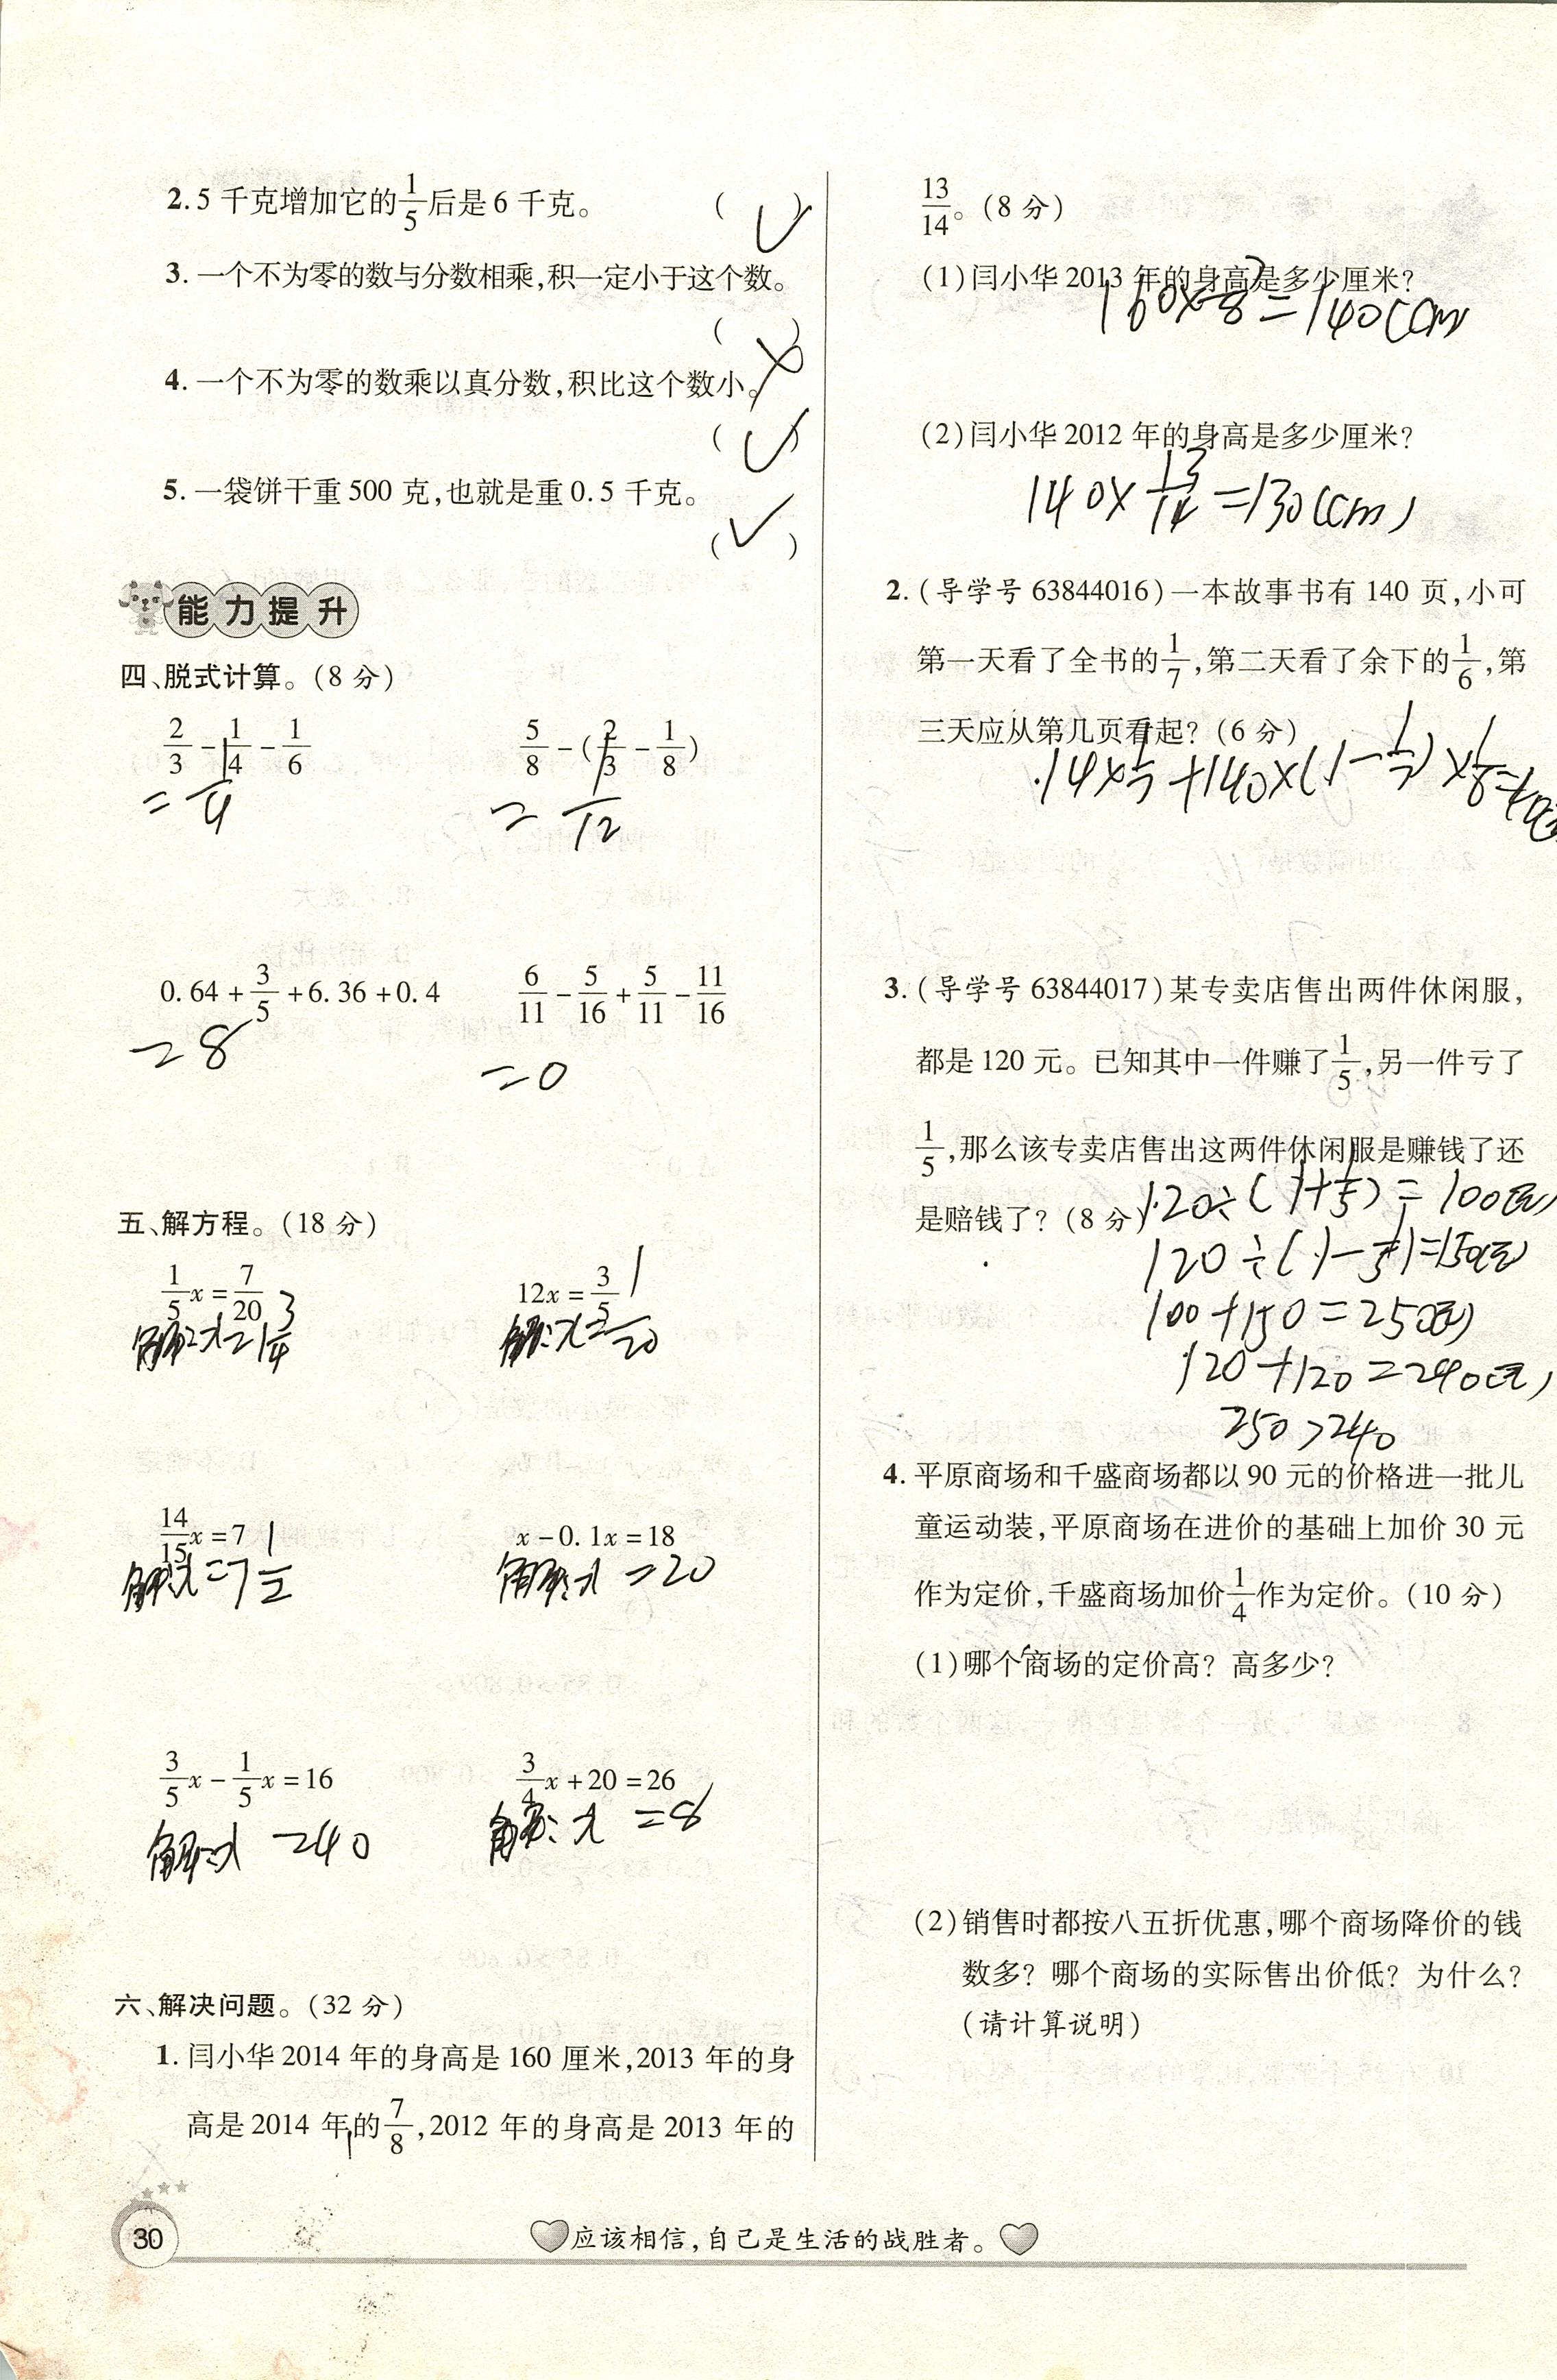 2. 5 千克增加它的1/5后是 6 千克。 (✓)
3. 一个不为零的数与分数相乘,积一定小于这个数。
(×)
4. 一个不为零的数乘以真分数,积比这个数小。
(✓)
5. 一袋饼干重 500 克,也就是重 0.5 千克。
(✓)
能力提升
四、脱式计算。(8 分)
2/3 - 1/4 - 1/6    5/8 - (2/3 - 1/8)
= 1/4    = 1/12
0.64 + 3/5 + 6.36 + 0.4    6/11 - 5/16 + 5/11 - 11/16
= 8    = 0
五、解方程。(18 分)
1/5 x = 7/20    12x = 3/5
解:x = 1 3/4    解:x = 1/20
14/15 x = 7    x - 0.1x = 18
解:x = 7 1/2    解:x = 20
3/5 x - 1/5 x = 16    3/4 x + 20 = 26
解:x = 40    解:x = 8
六、解决问题。(32 分)
1. 闫小华 2014 年的身高是 160 厘米,2013 年的身
高是 2014 年的7/8,2012 年的身高是 2013 年的
13/14。(8 分)
(1)闫小华 2013 年的身高是多少厘米?
160×7/8=140(cm
(2)闫小华 2012 年的身高是多少厘米?
140×13/14=130(cm)
2. (导学号 63844016)一本故事书有 140 页,小可
第一天看了全书的1/7,第二天看了余下的1/6,第
三天应从第几页看起?(6 分)
3. (导学号 63844017)某专卖店售出两件休闲服,
都是 120 元。已知其中一件赚了1/5,另一件亏了
1/5,那么该专卖店售出这两件休闲服是赚钱了还
是赔钱了?(8 分)
120÷(1+1/5)=100(元)
120÷(1-1/5)=150(元)
100+150=250(元)
120+120=240(元)
250>240
4. 平原商场和千盛商场都以 90 元的价格进一批儿
童运动装,平原商场在进价的基础上加价 30 元
作为定价,千盛商场加价1/4作为定价。(10 分)
(1)哪个商场的定价高?高多少?
(2)销售时都按八五折优惠,哪个商场降价的钱
数多?哪个商场的实际售出价低?为什么?
(请计算说明)
30
应该相信,自己是生活的战胜者。